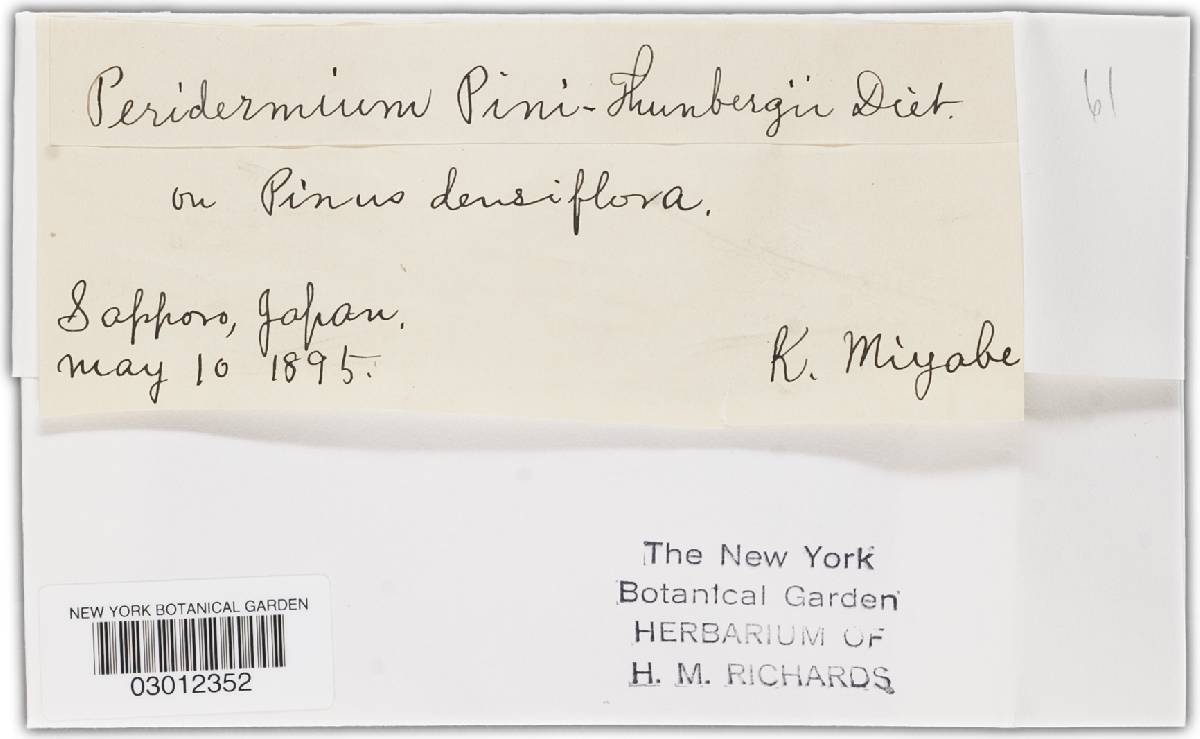 Peridermium Pini-Thunbergii Diet.
61
on Pinus densiflora.
Sapporo, Japan.
May 10 1895.
K. Miyabe
The New York
Botanical Garden
HERBARIUM OF
H. M. RICHARDS
NEW YORK BOTANICAL GARDEN
03012352